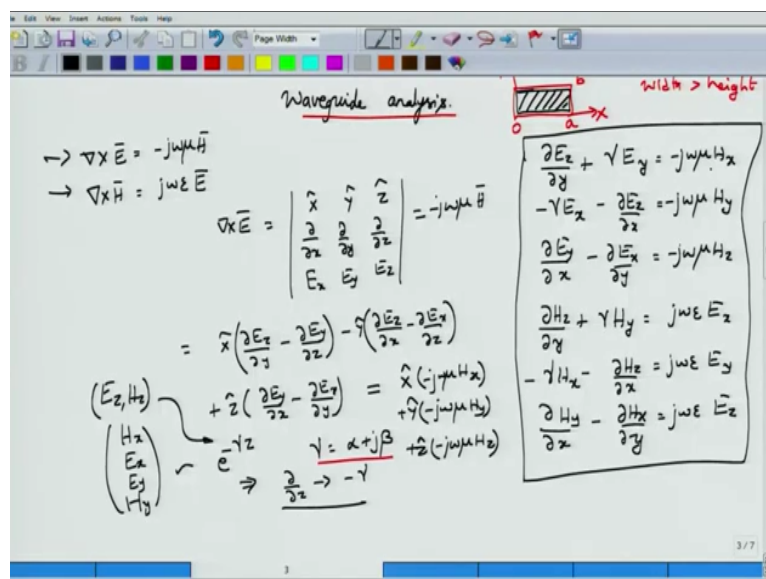 Edit View Insert Actions Tools Help
Page Width
B I
Waveguide analysis.
b
0 a x
width > height
→ ∇×Ē = -jωμH̄
→ ∇×H̄ = jωε Ē
∇×Ē = | x̂ ŷ ẑ | = -jωμ H̄
∂/∂x ∂/∂y ∂/∂z
Ex Ey Ez
= x̂(∂Ez/∂y - ∂Ey/∂z) - ŷ(∂Ez/∂x - ∂Ex/∂z)
+ ẑ(∂Ey/∂x - ∂Ex/∂y) = x̂(-jωμHx)
+ŷ(-jωμHy)
+ẑ(-jωμHz)
(Ez, Hz)
(Hx
Ex
Ey
Hy)
e^-γz
γ = α+jβ
⇒ ∂/∂z → -γ
∂Ez/∂y + γEy = -jωμHx
-γEx - ∂Ez/∂x = -jωμHy
∂Ey/∂x - ∂Ex/∂y = -jωμHz
∂Hz/∂y + γHy = jωε Ex
-γHx - ∂Hz/∂x = jωε Ey
∂Hy/∂x - ∂Hx/∂y = jωε Ez
3/7
3